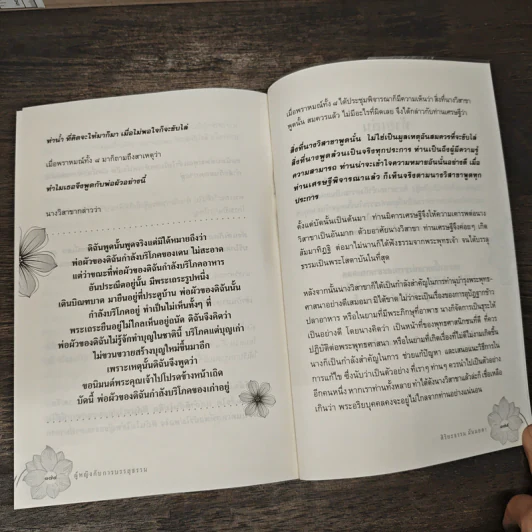 ท่านํ้า ที่คิดจะไข่มาก็มา เมื่อไม่พอใจก็จะขับไล่
เมื่อพราหมณ์ทั้ง ๘ มาก็ถามถึงสาเหตุว่า
ทำไมเธอจึงพูดกับพ่อผัวอย่างนี้
นางวิสาขากล่าวว่า
ดิฉันพูดนั้นพูดจริงแต่มิได้หมายถึงว่า
พ่อผัวของดิฉันกำลังบริโภคของแดน ไม่สะอาด
แต่ว่าขณะที่พ่อผัวของดิฉันกำลังบริโภคอาหาร
อันประณีตอยู่นั้น มีพระเถระรูปหนึ่ง
เดินบิณฑบาต มายืนอยู่ที่ประตูบ้าน พ่อผัวของดิฉันนั้น
กำลังบริโภคอยู่ ทำเป็นไม่เห็นทั้งๆ ที่
พระเถระยืนอยู่ไม่ไกลเห็นอยู่ถนัด ดิฉันจึงคิดว่า
พ่อผัวของดิฉันไม่รู้จักทำบุญในชาตินี้ บริโภคแต่บุญเก่า
ไม่ขวนขวายสร้างบุญใหม่ขึ้นมาอีก
เพราะเหตุนั้นดิฉันจึงพูดว่า
ขอนิมนต์พระคุณเจ้าไปโปรดข้างหน้าเถิด
บัดนี้ พ่อผัวของดิฉันกำลังบริโภคของเก่าอยู่
ผู้หญิงกับการบรรลุธรรม
เมื่อพราหมณ์ทั้ง ๘ ได้ประชุมพิจารณาก็มีความเห็นว่า สิ่งที่นางวิสาขา
พูดนั้น สมควรแล้ว ไม่มีอะไรที่ผิดเลย จึงได้กล่าวกับท่านเศรษฐีว่า
สิ่งที่นางวิสาขาพูดนั้น ไม่ใช่เป็นมูลเหตุอันสมควรที่จะขับไล่
สิ่งที่นางพูดล้วนเป็นจริงทุกประการ ท่านเป็นถึงผู้มีความรู้
ความสามารถ ท่านน่าจะเข้าใจความหมายอันนั้นอย่างดี เมื่อ
ท่านเศรษฐีพิจารณาแล้ว ก็เห็นจริงตามนางวิสาขาพูดทุก
ประการ
ตั้งแต่บัดนั้นเป็นต้นมา ท่านมิคารเศรษฐีจึงให้ความเคารพต่อนาง
วิสาขาเป็นอันมาก ด้วยอาศัยนางวิสาขา ท่านเศรษฐีจึงค่อยๆ เกิด
สัมมาทิฏฐิ ต่อมาไม่นานก็ได้ฟังธรรมจากพระพุทธเจ้า จนได้บรรลุ
ธรรมเป็นพระโสดาบันในที่สุด
หลังจากนั้นนางวิสาขาก็ได้เป็นกำลังสำคัญในการทำนุบำรุงพระพุทธ-
ศาสนาอย่างดีเสมอมา มิได้ขาด ไม่ว่าจะเป็นเรื่องของการอุปัฏฐากข้าว
ปลาอาหาร หรือในยามที่มีพระภิกษุที่อาพาธ นางก็จัดการเป็นธุระให้
เป็นอย่างดี โดยนางคิดว่า เป็นหน้าที่ของพุทธศาสนิกชนที่ดี ที่ควร
ปฏิบัติต่อพระพุทธศาสนา หรือในยามที่เกิดเรื่องที่ไม่ดีไม่งามเกิดขึ้น
นางก็เป็นกำลังสำคัญในการ ช่วยแก้ปัญหา และเสนอแนะวิธีการใน
การแก้ไข ซึ่งนับว่าเป็นตัวอย่าง ที่เราๆ ท่านๆ ควรนำไปเป็นตัวอย่าง
อีกคนหนึ่ง หากเราท่านทั้งหลาย ทำได้ดังนางวิสาขาแล้วล่ะก็ เชื่อเหลือ
เกินว่า พระอริยบุคคลคงจะอยู่ไม่ไกลจากท่านอย่างแน่นอน